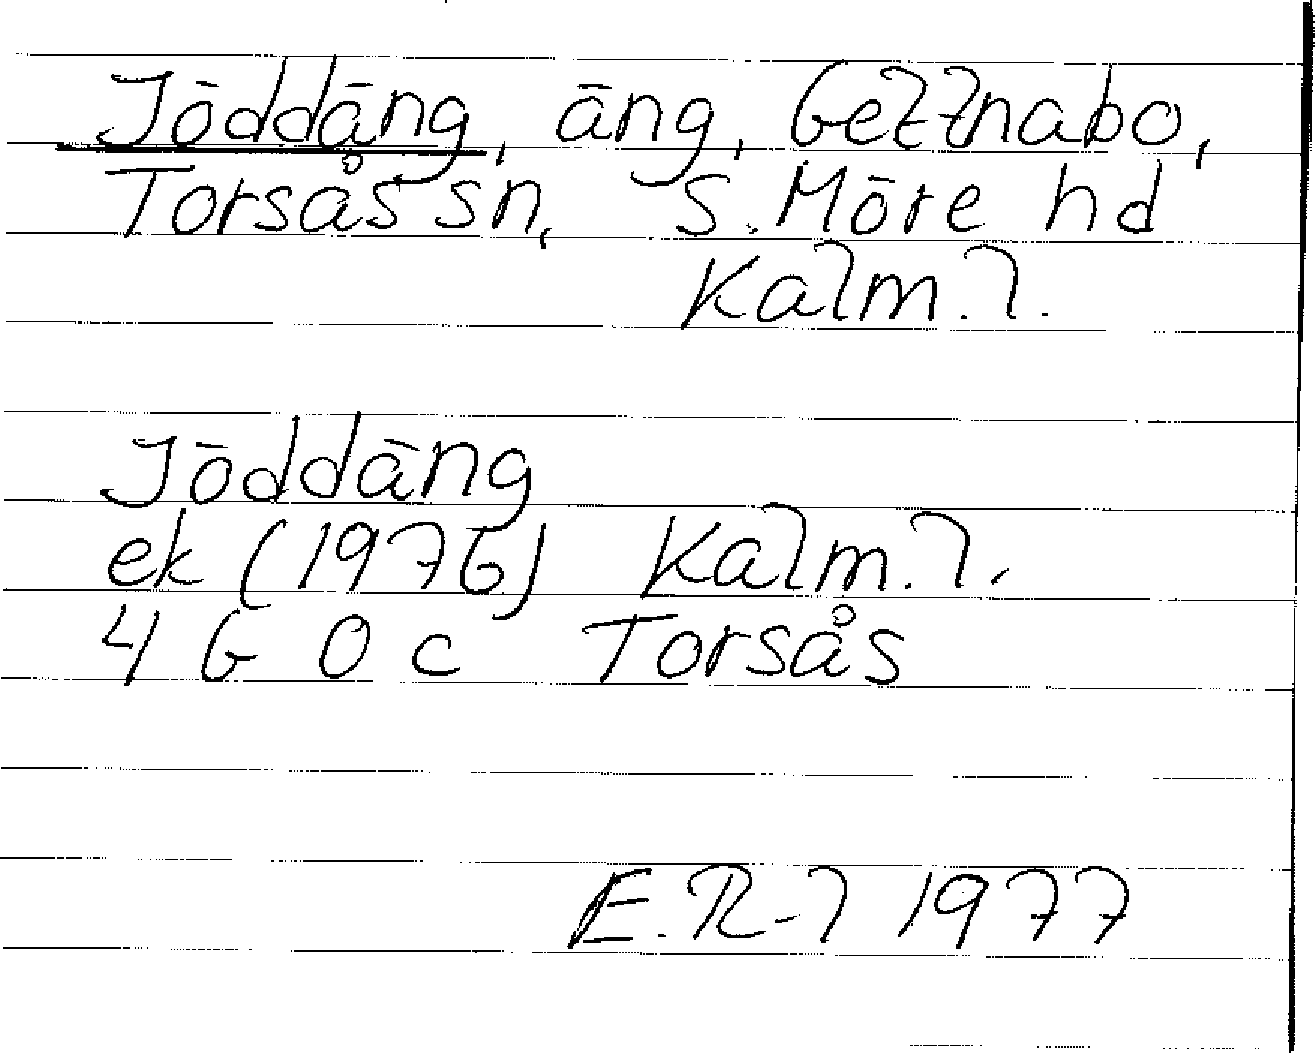 Jōddāng, āng, Gettnabo,
Torsås sn, S. Mōre hd
Kalm. l.
Jōddāng
ek (1976) Kalm. l.
4 G 0 c Torsås
E.R-l 1977